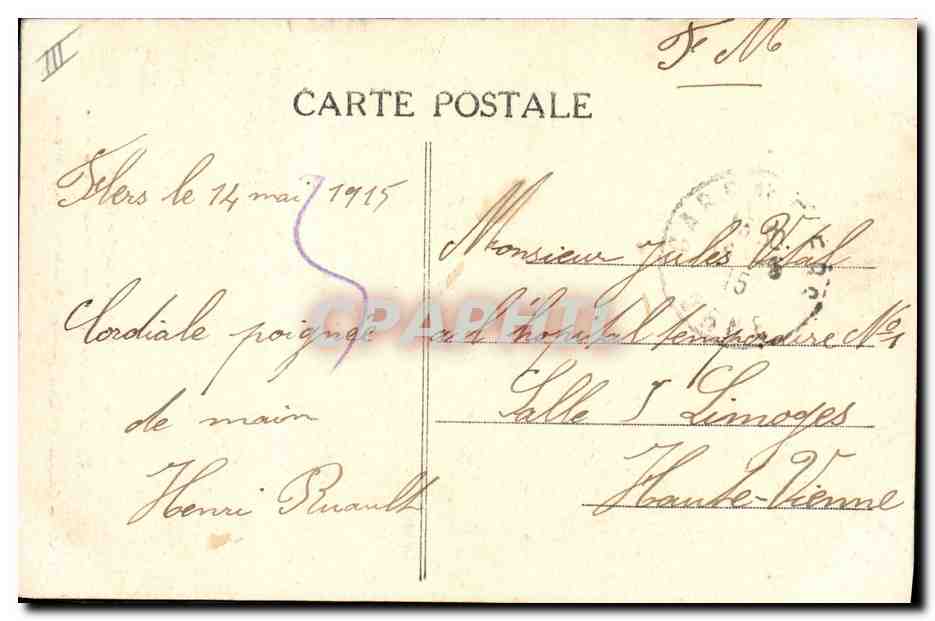 III
F M
CARTE POSTALE
Flers le 14 mai 1915
Cordiale poignée
de main
Henri Ruault
Monsieur Jules Vital
a l'hôpital temporaire No 1
Salle J Limoges
Haute-Vienne
CPAPHIL